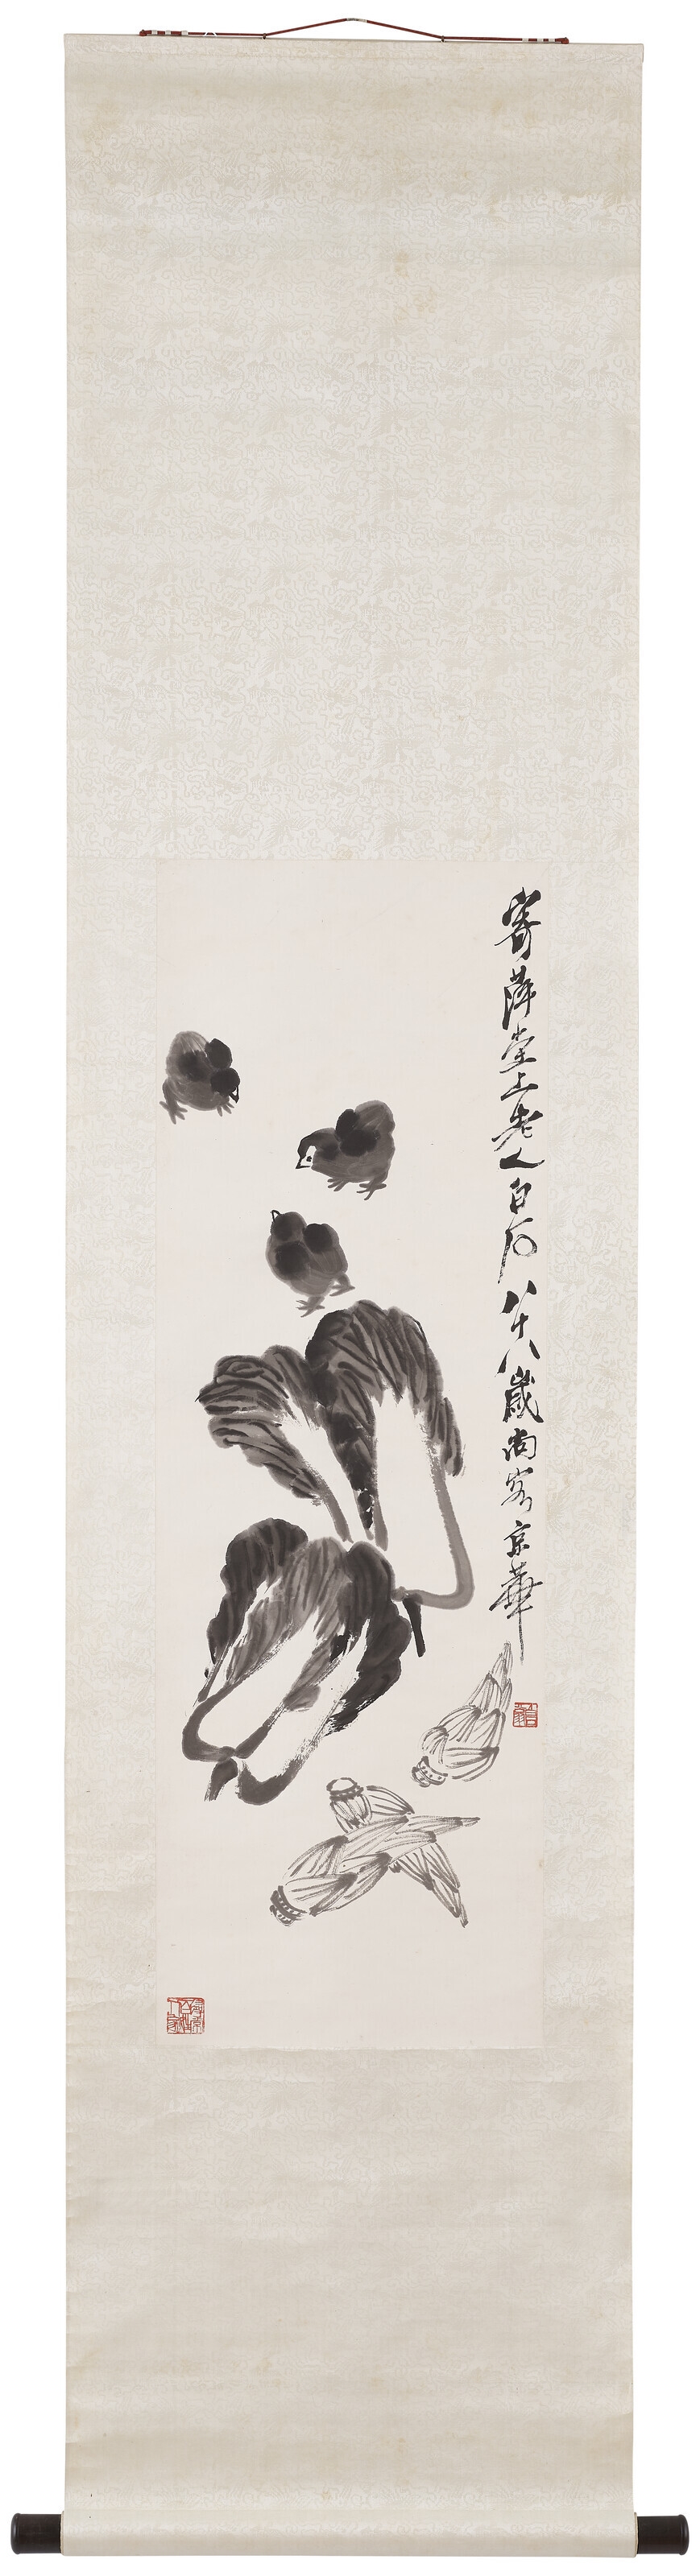 寄萍堂上老人白石八十八歲尚客京華